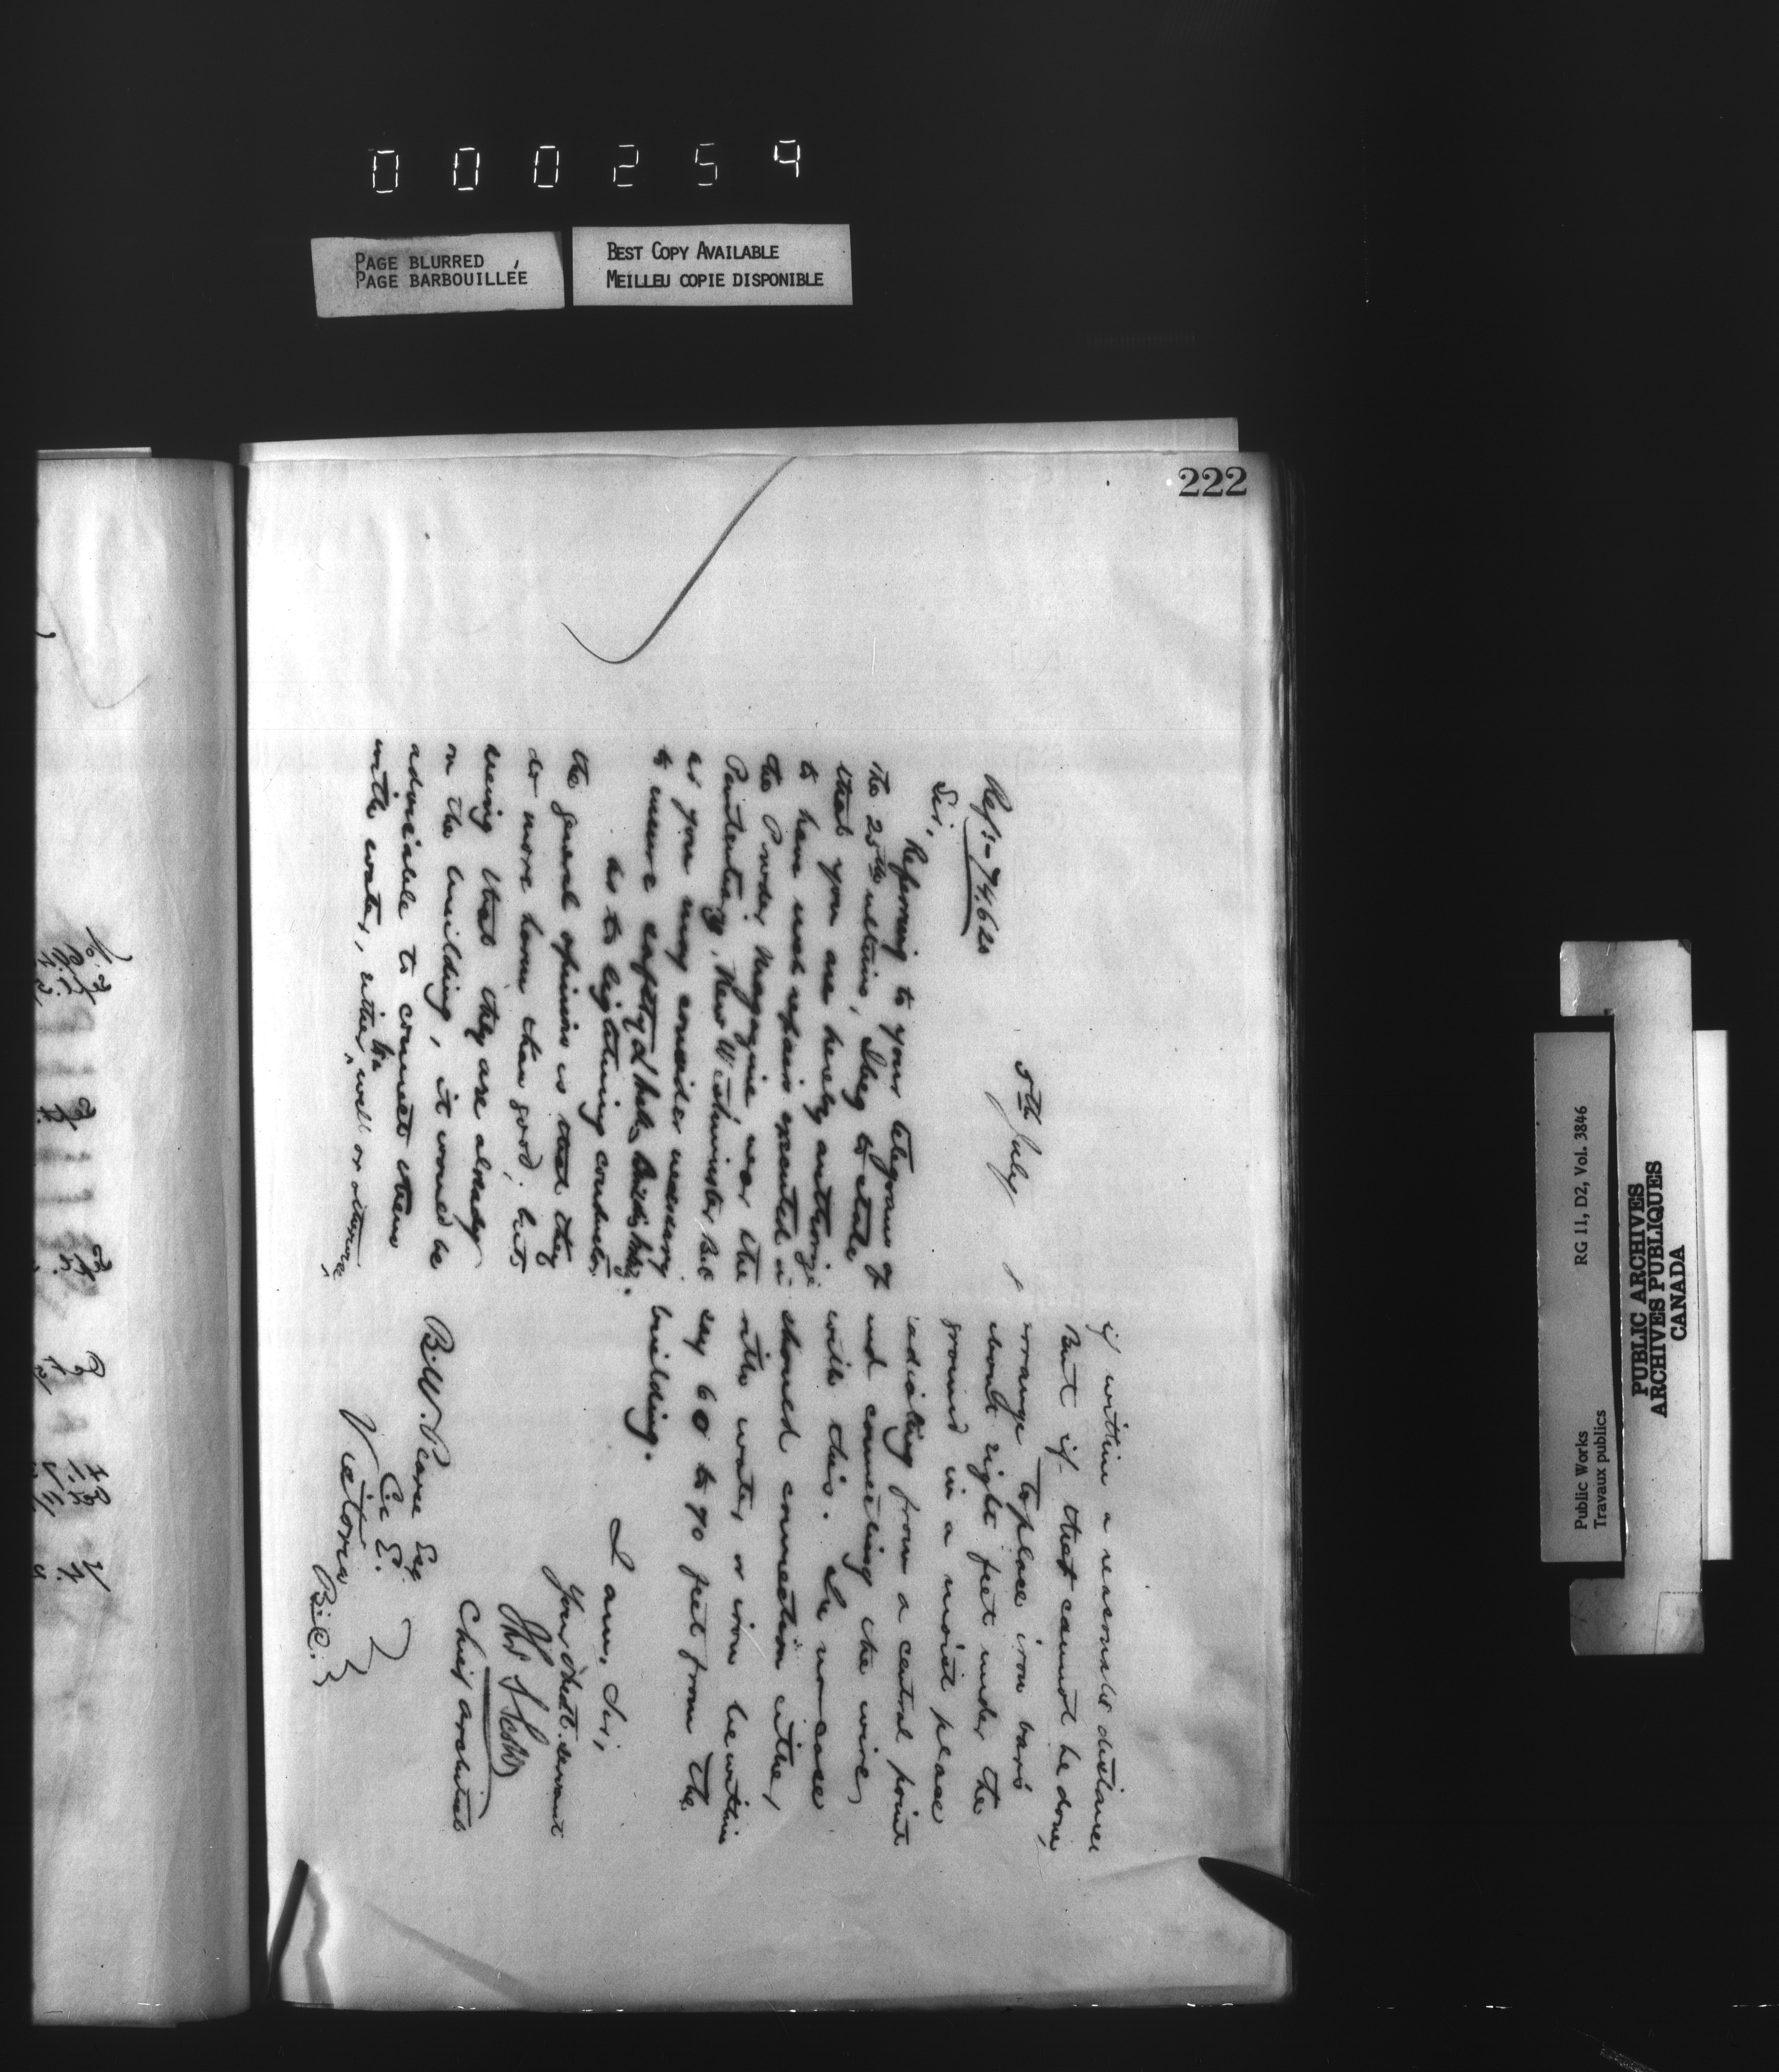 000259
PAGE BLURRED
PAGE BARBOUILLÉE
BEST COPY AVAILABLE
MEILLEU COPIE DISPONIBLE
222
5th July
Refs - 74.620
Sir,
Referring to your telegram of
the 25th ultimo, I beg to state
that you are hereby authorize
to have used repairs executed in
the Powder Magazine near the
Penitentiary, New Westminster B.C
as you may consider necessary
to insure safety of
As to lightning conductors
the general opinion is that they
do more harm than good, but
seeing that they are already
on the building, it would be
adviseable to connect them
with water, either the well or otherwise,
if within a reasonable distance
But if that cannot be done,
arrange to place iron bars
about eight feet under the
ground in a moist place
radiating from a central point
and connecting the wire
with this. In no case
should connection either
with water or iron be within
say 60 to 90 feet from the
building.
I am, Sir,
Your obedt. servant
Chief Architect
B.W. Pearse Esq
C. E.
Victoria
B.C.
Public Works
Travaux publics
RG 11, D2, Vol. 3846
PUBLIC ARCHIVES
ARCHIVES PUBLIQUES
CANADA